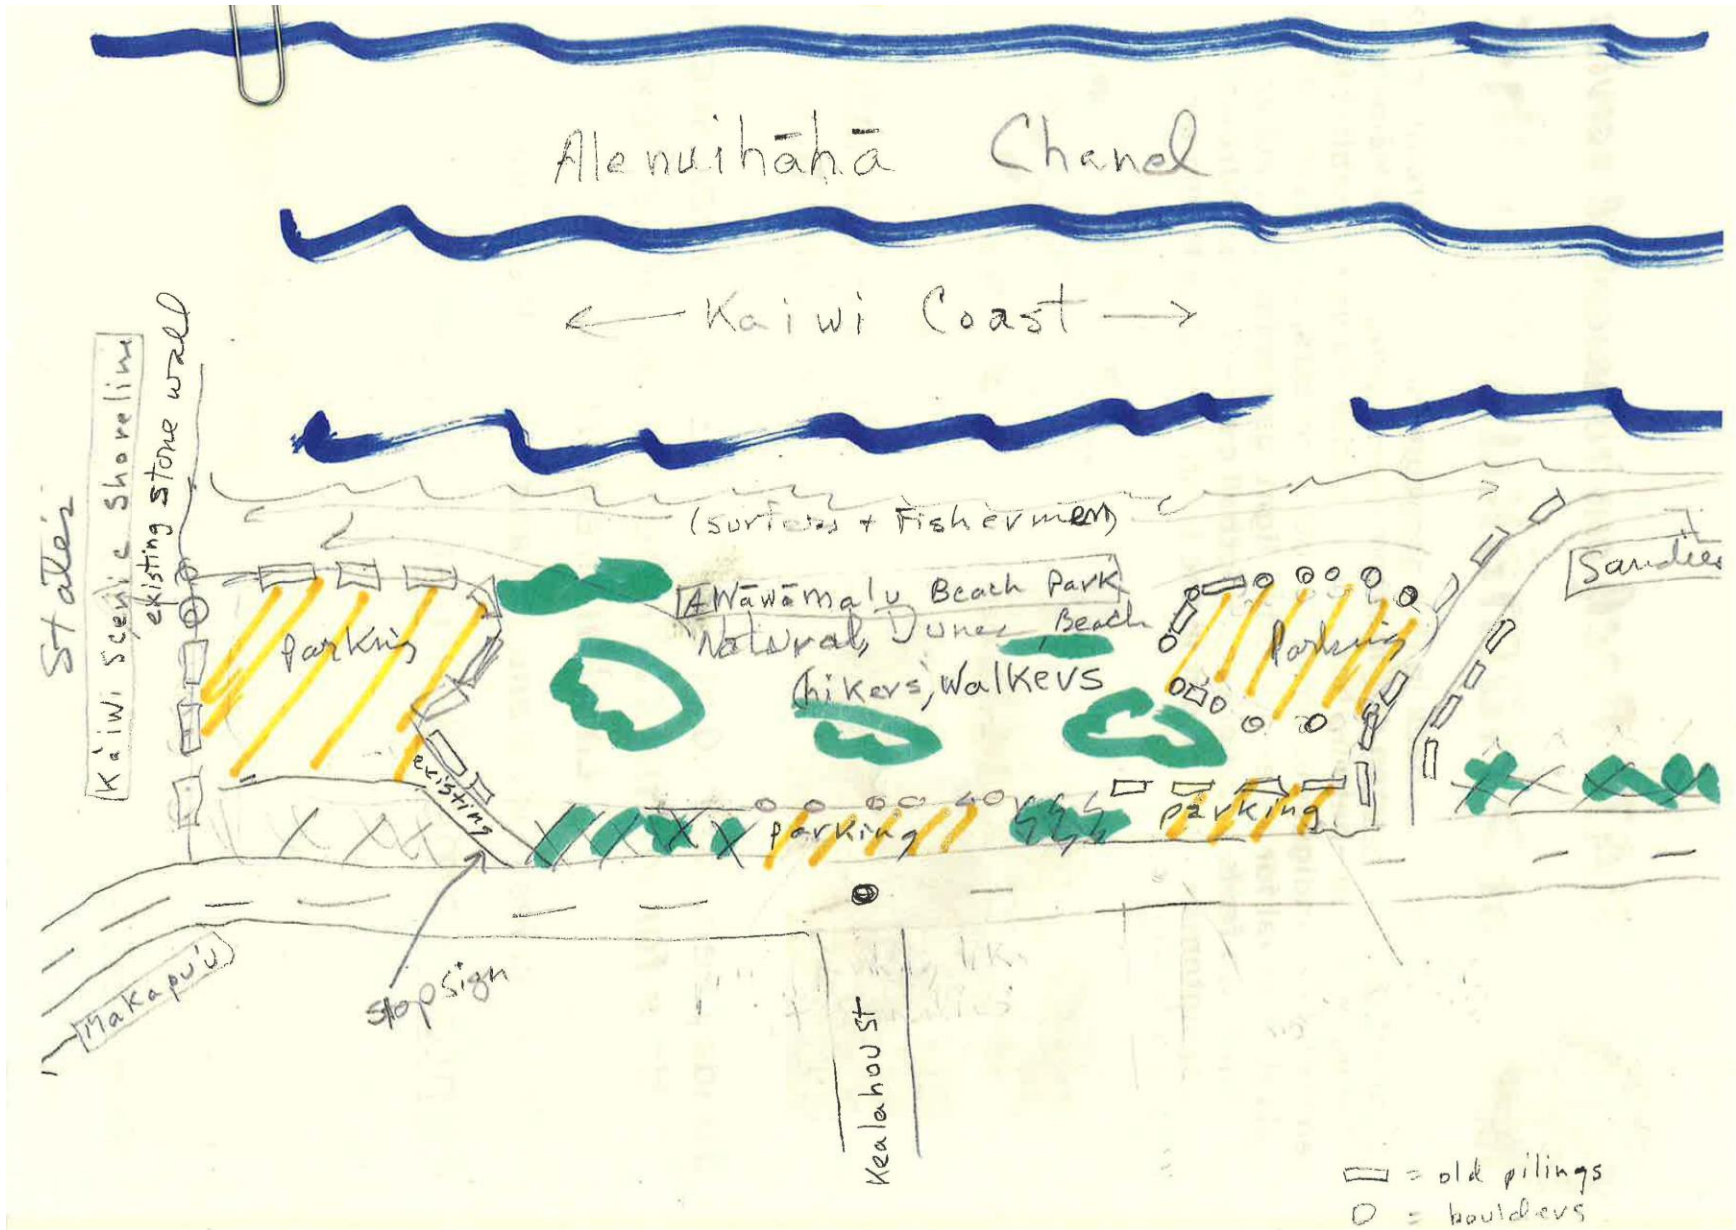 Alenuihāhā Chanel
← Kaiwi Coast →
State's
Ka'iwi Scenic Shoreline
existing stone wall
(surfers + Fishermen)
Sandies
Awāwāmalu Beach Park
Natural, Dunes, Beach
hikers, walkers
Parking
Parking
existing
parking
parking
Makapu'u
stop sign
Kealahou St
▭ = old pilings
○ = boulders